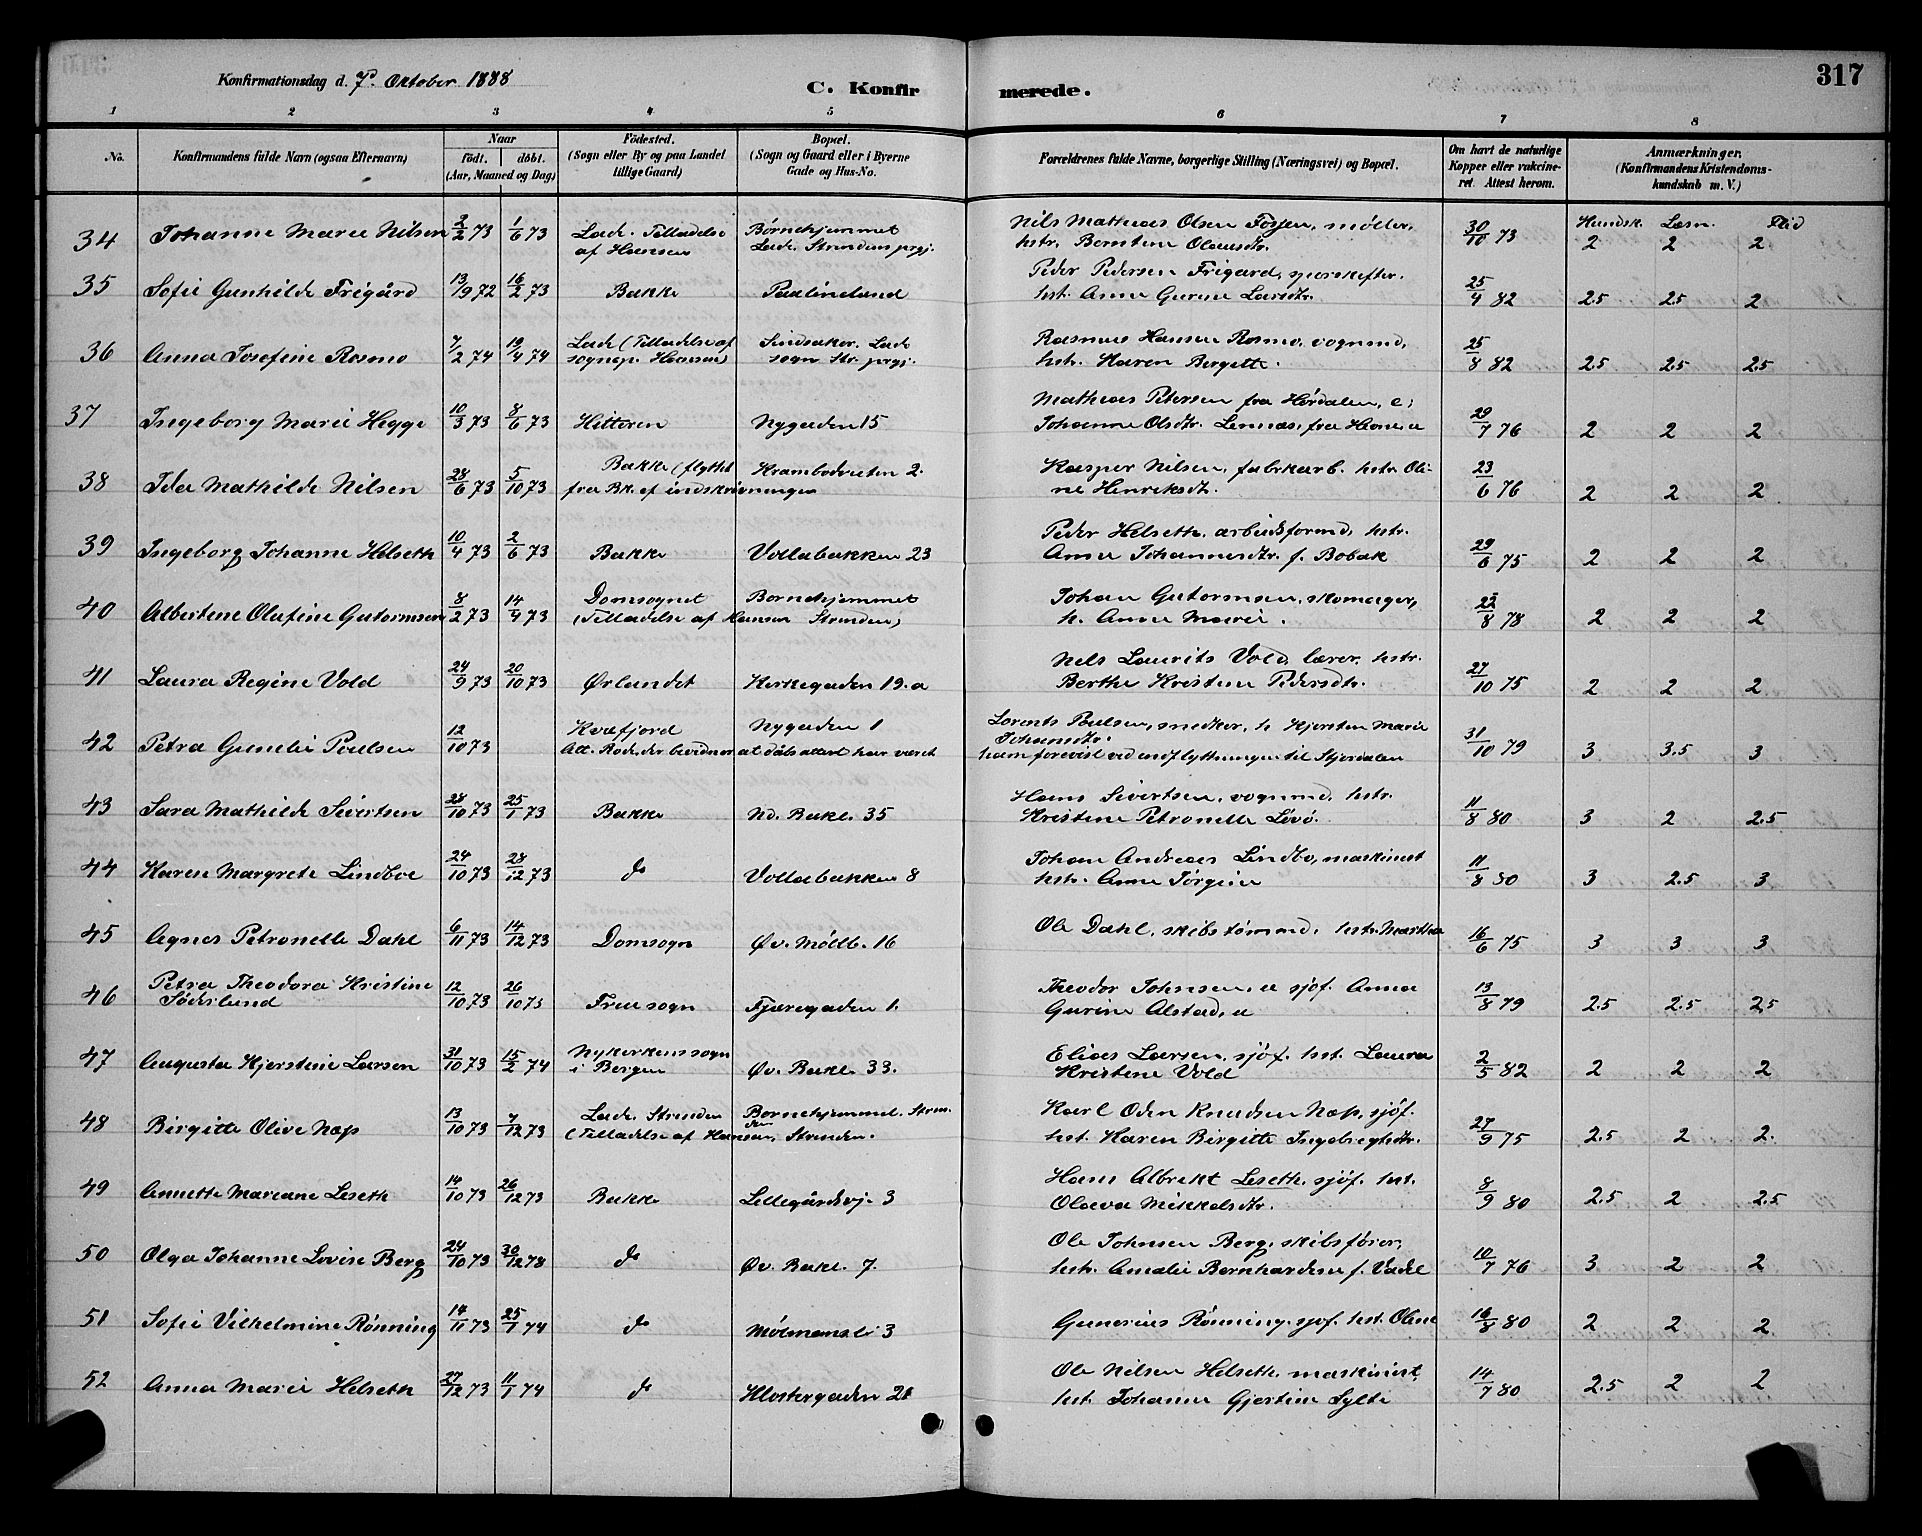 317
Konfirmationsdag d. 7de Oktober 1888
C. Konfirmerede.
1 2 3 4 5 6 7 8
No.
Konfirmandens fulde Navn (ogsaa Efternavn)
Naar
födt. döbt.
(Aar, Maaned og Dag)
Födested.
(Sogn eller By og paa Landet
tillige Gaard)
Bopæl.
(Sogn og Gaard eller i Byerne
Gade og Hus-No.
Forældrenes fulde Navne, borgerlige Stilling (Næringsvei) og Bopæl.
Om havt de naturlige
Kopper eller vakcine-
ret. Attest herom.
Anmærkninger.
(Konfirmandens Kristendoms-
kundskab m. V.)
Kundsk. Læsn. Flid
34 Johanne Marie Nilsen 2/2 73 1/6 73 Lade. Tilladelse Børnehjemmet Nils Mathias Olsen Fosjen, møller, 30/10 73 2 2 2
af Hansen Lade. Strindens prgj. hstr. Berntine Olausdtr.
35 Sofie Gunhilde Frigård 13/9 72 16/2 73 Bakke Paulinelund Peder Pedersen Frigaard, sporskifter. 25/4 82 2.5 2.5 2
hst. Anne Gurine Larsdtr.
36 Anna Josefine Rosmo 7/2 74 19/4 74 Lade (Tilladelse af Lindsaker. Lade Rasmus Hansen Rosmo, vognmd, 25/8 82 2.5 2.5 2.5
sognepr. Hansen) sogn Str. prgj. hst. Karen Bergitte.
37 Ingeborg Marie Hegge 10/3 73 8/6 73 Hitteren Nygaden 15 Mathias Petersen fra Hørdalen, e; 29/7 76 2 2 2
Johanne Olsdtr. Lennæs, fra Hevne, u
38 Ida Mathilde Nilsen 28/6 73 5/10 73 Bakke (flyttet Krambodveiten 2. Kasper Nilsen, fabrkarb. hstr. Oli- 23/6 76 2 2 2
fra Bk. ef indskrivningen ne Henriksdtr.
39 Ingeborg Johanne Helseth 10/4 73 2/6 73 Bakke Vollabakken 23 Peder Helseth, arbeidsformd, hstr. 29/6 75 2 2 2
Anne Johannesdtr. f. Bobak
40 Albertine Olufine Gutormsen 8/2 73 14/4 73 Domsognet Børnehjemmet Johan Gutormsen, skomager, 22/8 78 2 2 2
(Tilladelse af Hansen Strinden) h. Anne Marie.
41 Laura Regine Vold 24/9 73 20/10 73 Ørlandet Kirkegaden 19.a Nils Laurits Vold, lærer, hstr. 27/10 75 2 2 2
Berthe Kristine Pedersdtr.
42 Petra Gunelie Poulsen 12/10 73 Kvæfjord Nygaden 1 Lorents Poulsen, snedker, h Hjersten Marie 31/10 79 3 3.5 3
Johansdtr.
Att. Rode, der bevidner at dåbsattest har været ham forevist ved indflytningen til Stjørdalen
43 Sara Mathilde Sivertsen 28/10 73 25/1 73 Bakke Nd. Bakl. 35 Hans Sivertsen, vognmd, hstr. 11/8 80 3 2 2.5
Kristine Petronelle Løvø.
44 Karen Margrete Lindboe 24/10 73 28/12 73 do Vollabakken 8 Johan Andreas Lindbo, maskinist 11/8 80 3 2.5 3
hstr. Anne Jørgine
45 Agnes Petronelle Dahl 6/11 73 14/12 73 Domsogn Øv. Møllb. 16 Ole Dahl, skibstømmd, hstr. Martha 16/6 75 3 3 3
46 Petra Theodora Kristine 12/10 73 26/10 75 Frue sogn Fjæregaden 1. Theodor Johnsen, u sjøf. Anna 13/8 79 2.5 2.5 2.5
Søderlund Gurine Alstad, u
47 Augusta Hjerstine Larsen 31/10 73 15/2 74 Nykirkens sogn Øv. Bakl. 33. Elias Larsen, sjöf. hst. Laura 2/5 82 2 2 2
i Bergen Kristine Vold
48 Birgitte Olive Næss 13/10 73 7/12 73 Lade. Strinden Børnehjemmet. Strin- Karl Oden Knudsen Næss, sjöf. 27/9 75 2.5 2 2.
den
(Tilladelse af Hansen, Strinden. hst. Karen Birgitte Ingebrigtsdtr.
49 Annette Mariane Leseth 14/10 73 26/12 73 Bakke Lillegårdsvj. 3 Hans Albrekt Leseth, sjöf. hst. 8/9 80 2.5 2 2.5
Olava Mikkelsdtr.
50 Olga Johanne Lovise Berg 24/10 73 30/12 78 do Øv. Bakl. 7. Ole Johnsen Berg, skibsfører, 10/7 76 3 2 2
hstr. Amalie Bernhardine f. Vadel
51 Sofie Vilhelmine Rønning 14/11 73 25/1 74 do Mølmansli 3 Gunerius Rønning, sjof. hst. Oline 16/8 80 2 2 2
52 Anna Marie Helseth 27/12 73 11/1 74 do Klostergaden 21 Ole Nilsen Helseth, maskinist, 14/7 80 2.5 2 2
hst. Johanne Gjertine Sylte